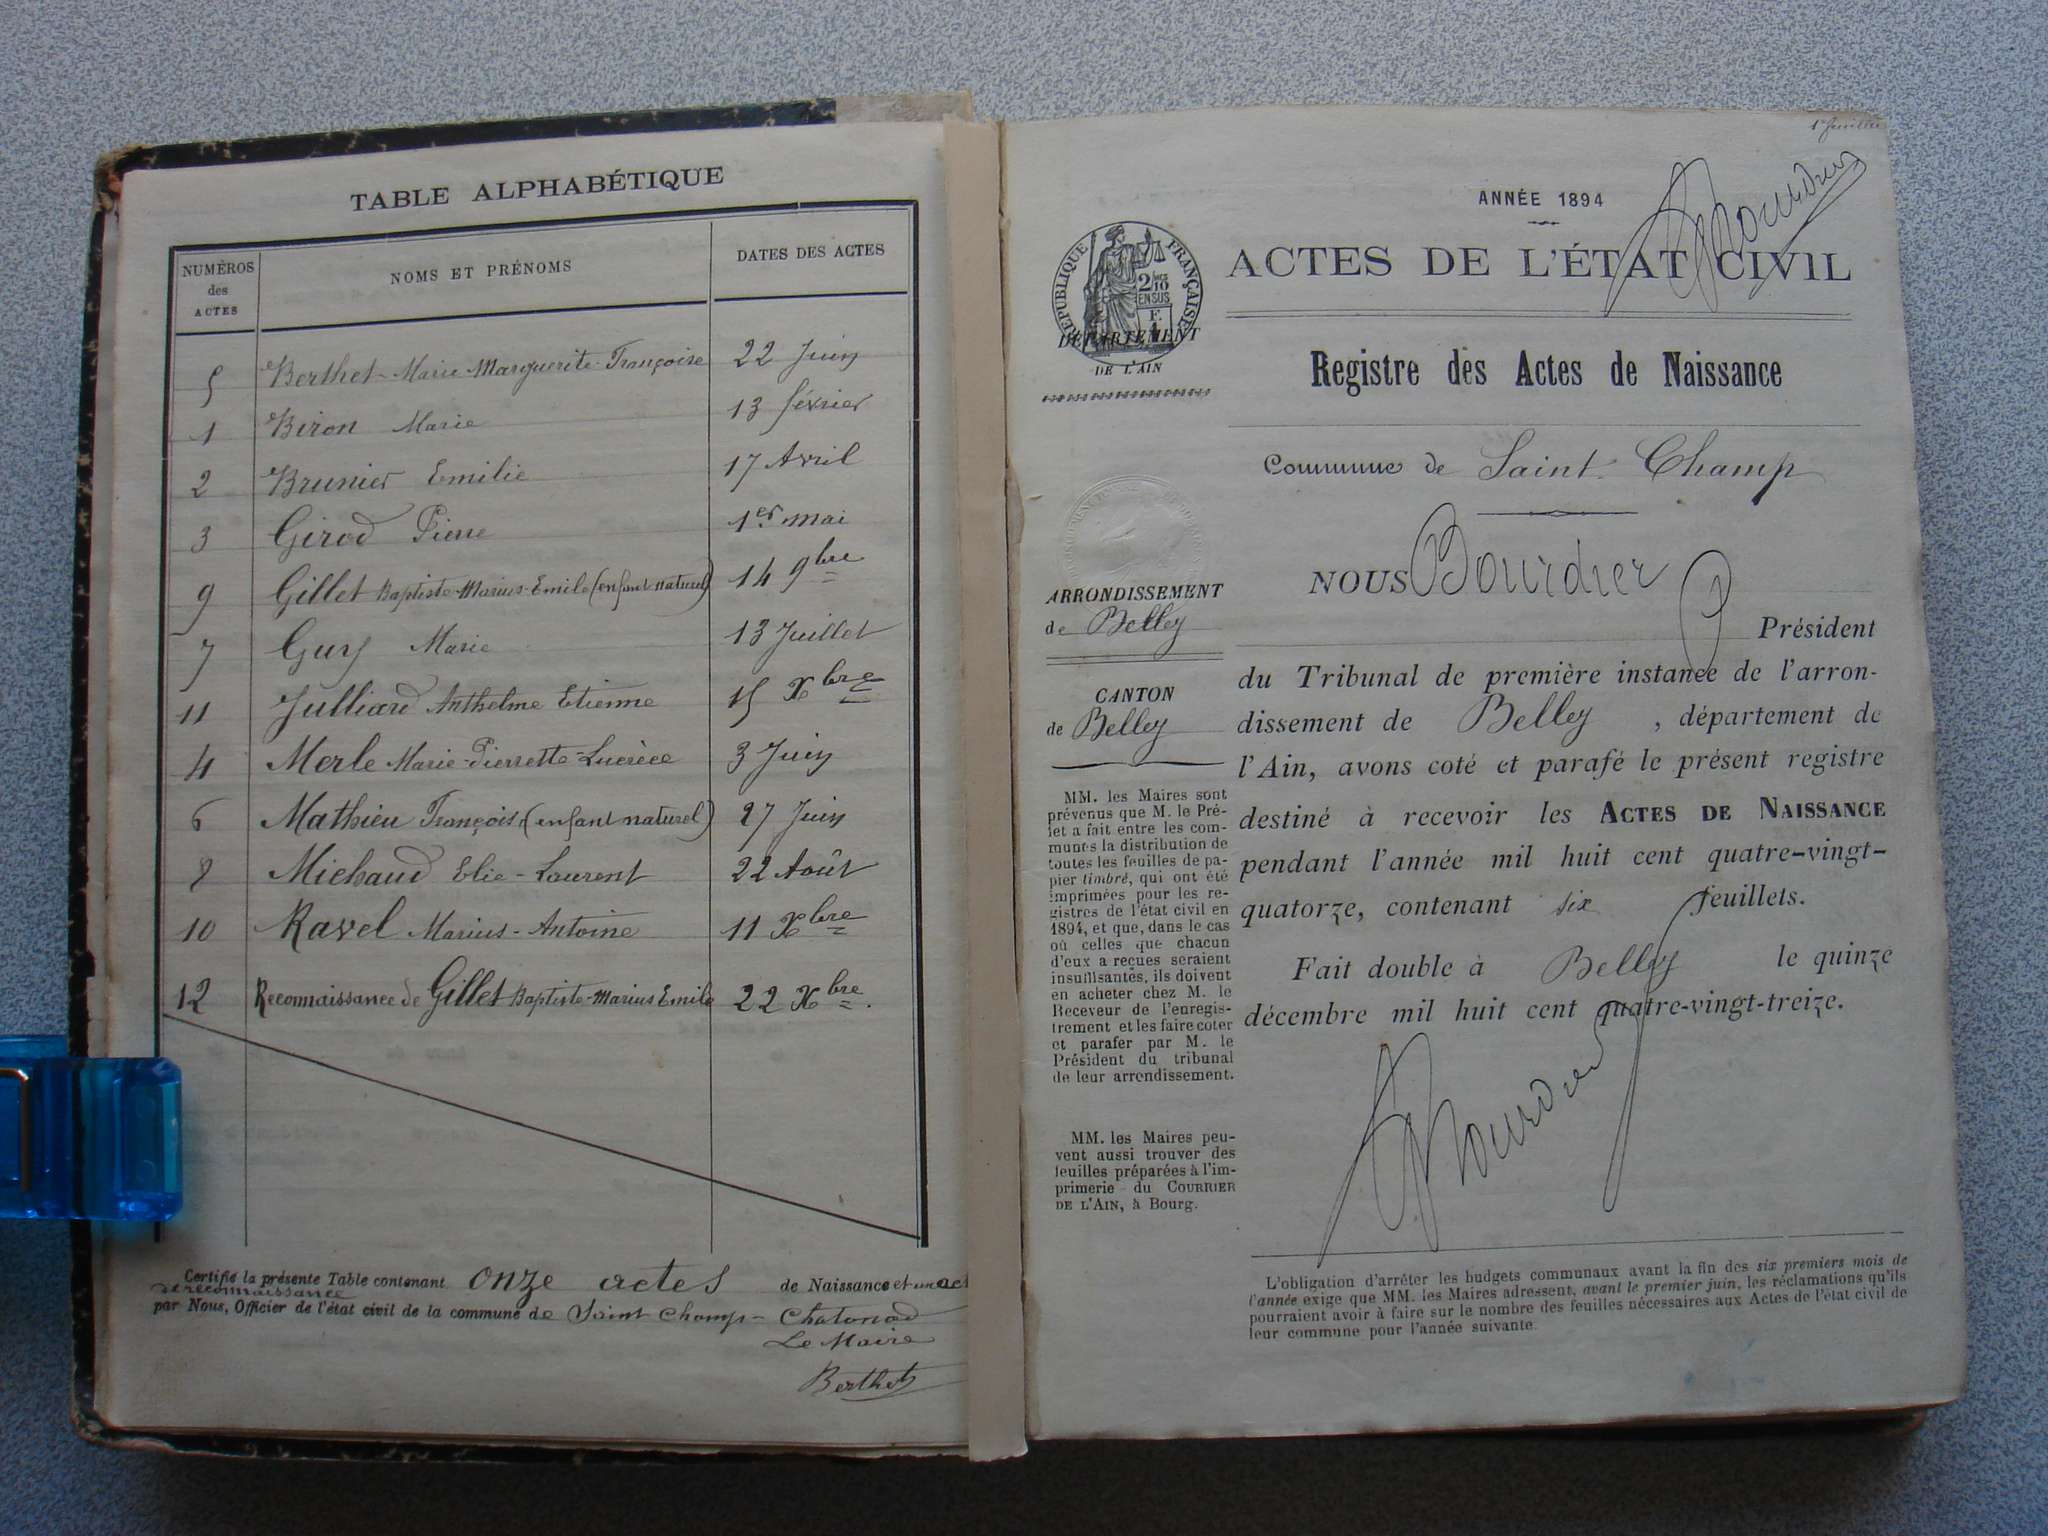 TABLE ALPHABÉTIQUE
NUMÉROS des ACTES NOMS ET PRÉNOMS DATES DES ACTES
5 Berthet Marie Marguerite Françoise 22 Juin
1 Biron Marie 13 février
2 Brunier Emilie 17 Avril
3 Girod Pierre 1er mai
9 Gillet Baptiste-Marius-Emile (enfant naturel) 14 9bre
7 Guy Marie 13 Juillet
11 Julliard Anthelme Etienne 15 Xbre
4 Merle Marie-Pierrette-Lucrèce 3 Juin
6 Mathieu François (enfant naturel) 27 Juin
8 Michaud Elie-Laurent 22 Août
10 Ravel Marius-Antoine 11 Xbre
12 Reconnaissance de Gillet Baptiste-Marius Emile 22 Xbre.
Certifié la présente Table contenant onze actes de Naissance et un act
de reconnaissance
par Nous, Officier de l'état civil de la commune de Saint Champ-Chatonod
Le Maire
Berthet
1er feuillet
ANNÉE 1894
ACTES DE L'ÉTAT CIVIL
Bourdier
RÉPUBLIQUE FRANÇAISE
2/10
EN SUS
DÉPARTEMENT
DE L'AIN
Registre des Actes de Naissance
Commune de Saint Champ
ARRONDISSEMENT
de Belley
CANTON
de Belley
MM. les Maires sont
prévenus que M. le Pré-
fet a fait entre les com-
munes la distribution de
toutes les feuilles de pa-
pier timbré, qui ont été
imprimées pour les re-
gistres de l'état civil en
1894, et que, dans le cas
où celles que chacun
d'eux a reçues seraient
insuffisantes, ils doivent
en acheter chez M. le
Receveur de l'enregis-
trement et les faire coter
et parafer par M. le
Président du tribunal
de leur arrondissement.
MM. les Maires peu-
vent aussi trouver des
feuilles préparées à l'im-
primerie du COURRIER
DE L'AIN, à Bourg.
NOUS Bourdier
Président
du Tribunal de première instance de l'arron-
dissement de Belley, département de
l'Ain, avons coté et parafé le présent registre
destiné à recevoir les ACTES DE NAISSANCE
pendant l'année mil huit cent quatre-vingt-
quatorze, contenant six feuillets.
Fait double à Belley le quinze
décembre mil huit cent quatre-vingt-treize.
Bourdier
L'obligation d'arrêter les budgets communaux avant la fin des six premiers mois de
l'année exige que MM. les Maires adressent, avant le premier juin, les réclamations qu'ils
pourraient avoir à faire sur le nombre des feuilles nécessaires aux Actes de l'état civil de
leur commune pour l'année suivante.